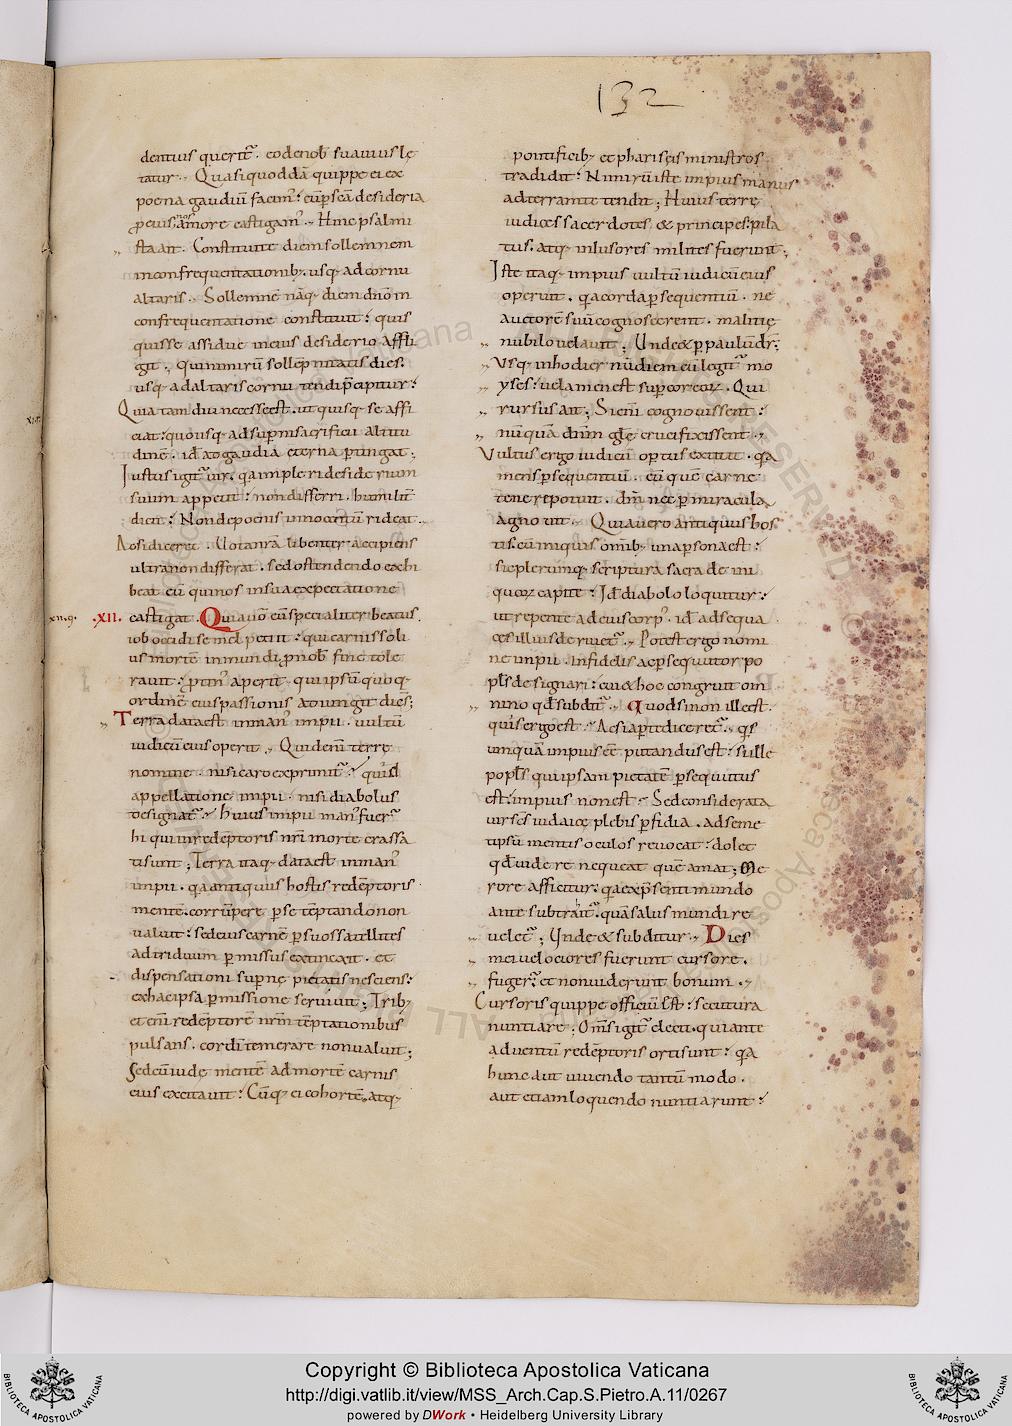 132
dentius querit͛ · eo denob̄ suauius lę
tatur · Quasi quoddā quippe ei ex
poena gaudiū facim᾽ : cū p̄ seā desideria
p̄ eius nos amore castigam᾽ · Hinc psalmi
sta ait · Constituite diem sollemnem
in confrequentationib; usq; ad cornu
altaris · Sollemnē nāq; diem dn̄o in
confrequentatione constituit : quis
quis se assidue in eius desiderio affli
git · qui nimirū sollēpnitatis dies ·
usq; ad altaris cornu tendi p̄cipitur :
Quia tam diu necesse est · ut quisq; se affi
ciat : quousq; ad sup̄ni sacrificii altitu
dinē · id ad gaudia ęterna p̄tingat ;
Iustus igit͛ uir · q̄a impleri desiderium
suum appetit : non differri · humilit̄
dicit : Non de poenis innocentū rideat
Ac si diceret · Uota nr̄a libenter accipiens
ultra non differat · sed ostendendo exhi
beat eū quē nos in sua expectatione
·XII· castigat · Quia uō eū specialiter beatus
iob occidi semel petiit : qui carnis soli
us mortē in mundi p̄ nob̄ fine tole
rauit : p̄tin᾽ aperit · qui ipsū quoq;
ordinē eius passionis adiungit dies ;
Terra data est in man᾽ impii · uultū
iudicū eius operit · Quid enī terrę
nomine · nisi caro exprimit͛ : quid
appellatione impii · nisi diabolus
designat͛ · Huius impii man᾽ fuer͛
hi qui in redēptoris nr̄i morte crassa
ti sunt ; Terra itaq; data est in man᾽
impii · q̄a antiquus hostis redēptoris
mentē corrūpere p̄ se tēptando non
ualuit : sed eius carnē p̄ suos satellites
ad triduum p̄missus extinxit · et
dispensationi supnę pietatis nesciens :
ex hac ipsa p̄missione seruiuit ; Trib;
et enī redēptorē nr̄m tēptationibus
pulsans · cor di temerare non ualuit ;
Sed cū iudę mentē ad mortē carnis
eius excitauit : Cūq; ei cohortē · atq;
pontificib; et pharisęis ministros
tradidit : Nimirū iste impius manus
ad terram tetendit ; Huius terrę
iudices sacerdotes & principes · pila
tus · atq; inlusores milites fuerunt ;
Iste itaq; impius uultū iudicū eius
operuit · q̄a corda p̄sequentiū · ne
auctorē suū cognoscerent · malitię
nubilo uelauit ; Unde & p̄ paulū dr̄ :
Usq; in hodiernū diem cū legit͛ mo
yses : uelamen est sup cor eoꝝ · Qui
rursus ait ; Si enī cognouissent :
nūquā dn̄m glę crucifixissent ·
Uultus ergo iudicū op̄tus extitit · q̄a
mens p̄sequentiū · eū quē carne
tenere potuit · dm̄ nec p̄ miracula
agnouit · Quia uero antiquus hos
tis · cū iniquis omīb; una p̄sona est :
sic plerūq; scriptura sacra de ini
quoꝝ capite : Id diabolo loquitur :
ut repente ad eius corp᾽ · id ad sequa
ces illius deriuet͛ · Potest ergo nomi
ne impii · infidelis ac p̄secutor po
pl̄s designari : cui & hoc congruit om
nino qd̄ subdit͛ · Quod si non ille est ·
quis ergo est : Ac si ap̄te dicerer͛ · q̄s
umquā impius eē putandus est : si ille
popl̄s qui ipsam pietatē p̄sequutus
est : impius non est · Sed considerata
uir sēs iudaicę plebis p̄fidia · ad seme
tipsū mentis oculos reuocat : dolet
qd̄ uidere nequeat quē amat ; Me
rore afficitur : q̄a ex p̄senti mundo
ante subtrahit͛ · quā salus mundi re
uelet͛ ; Unde & subditur · Dies
mei uelociores fuerunt cursore ·
fuger͛ : et non uiderunt bonum ·
Cursoris quippe officiū est : secutura
nuntiare ; Om̄s igit͛ electi · qui ante
aduentū redēptoris orti sunt : q̄a
hunc aut uiuendo tantū modo ·
aut etiam loquendo nuntiarunt :
Copyright © Biblioteca Apostolica Vaticana
http://digi.vatlib.it/view/MSS_Arch.Cap.S.Pietro.A.11/0267
powered by DWork • Heidelberg University Library
BIBLIOTECA APOSTOLICA VATICANA
BIBLIOTECA APOSTOLICA VATICANA